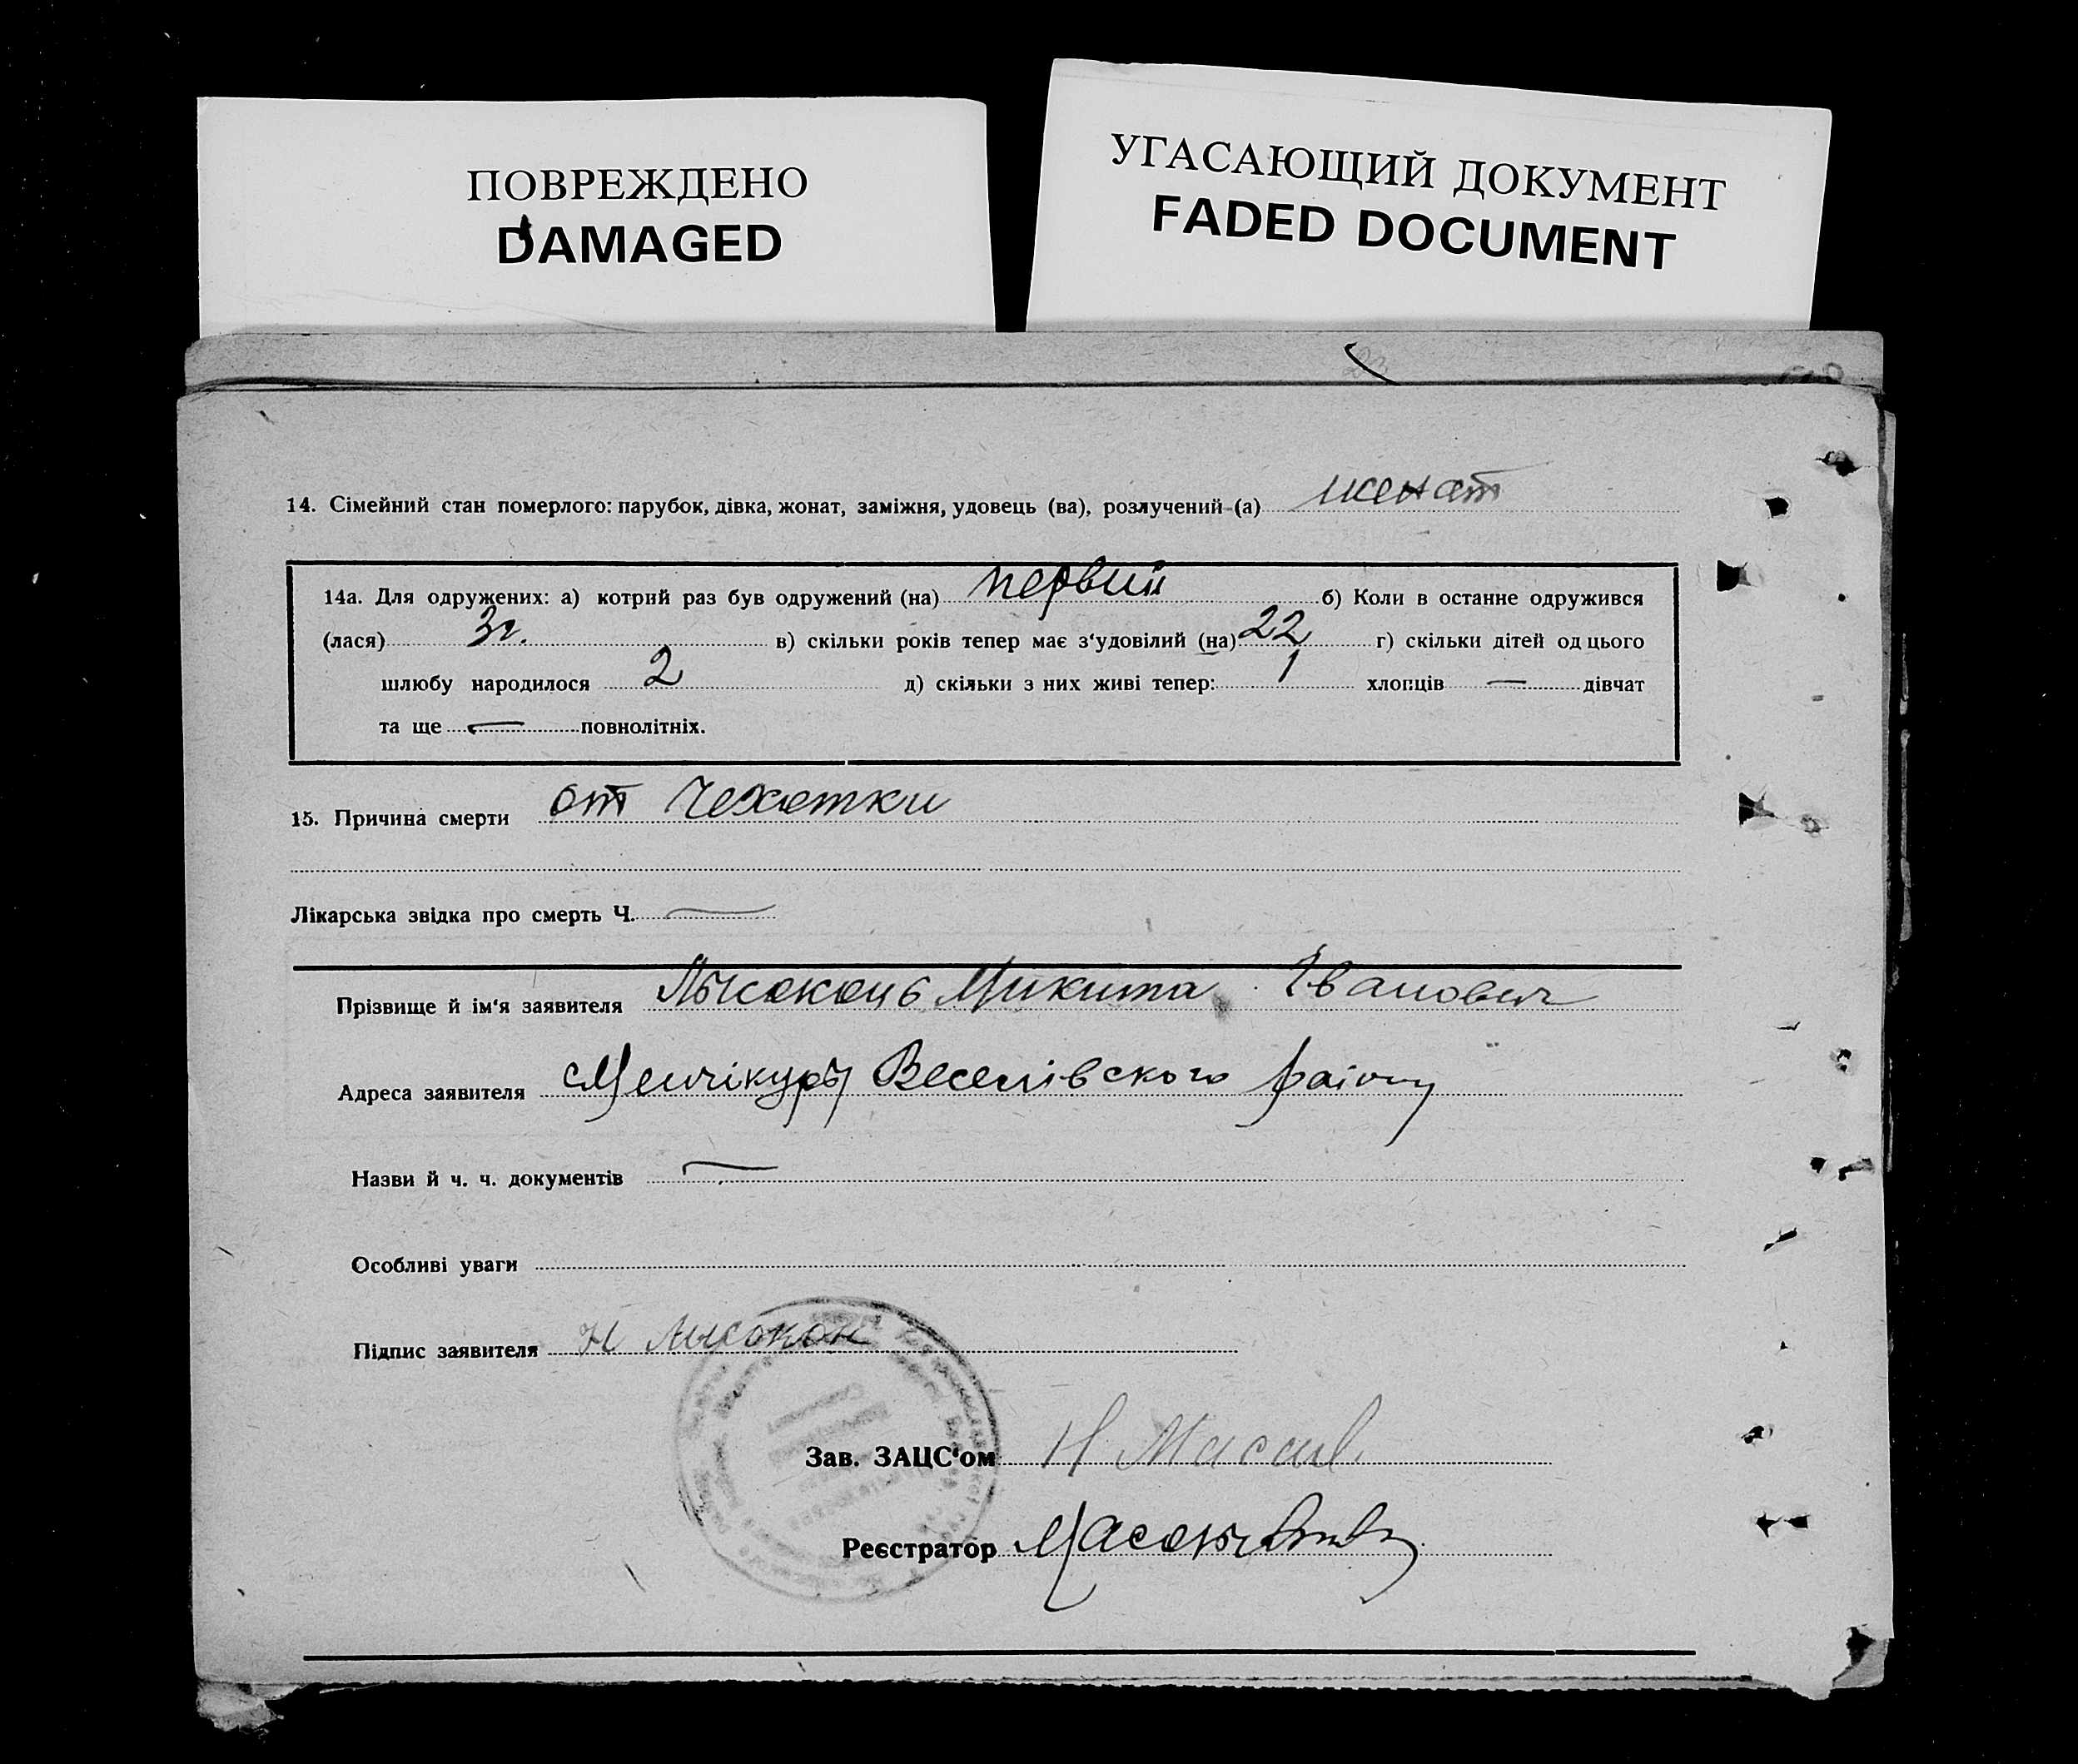 ПОВРЕЖДЕНО
DAMAGED
УГАСАЮЩИЙ ДОКУМЕНТ
FADED DOCUMENT
14. Сімейний стан померлого: парубок, дівка, жонат, заміжня, удовець (ва), розлучений (а) женат
14а. Для одружених: а) котрий раз був одружений (на) первий б) Коли в останне одружився
(лася) 3 г. в) скільки років тепер має з'удовілий (на) 22 г) скільки дітей од цього
шлюбу народилося 2 д) скільки з них живі тепер: 1 хлопців — дівчат
та ще — повнолітніх.
15. Причина смерти от Чехотки
Лікарська звідка про смерть Ч. —
Прізвище й ім'я заявителя Лысоконь Микита Іванович
Адреса заявителя Менчікури Веселівского району
Назви й ч. ч. документів —
Особливі уваги
Підпис заявителя Н Лысокон
Зав. ЗАЦС'ом Н
Реєстратор